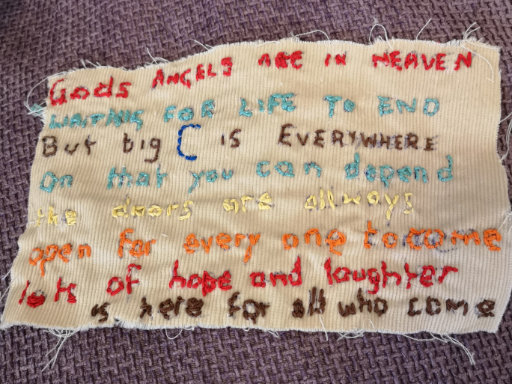 Gods ANGELS ARE IN HEAVEN
WAITING FOR LIFE TO END
But big C is EVERYWHERE
On that you can depend
the doors are allways
open for every one to come
lots of hope and laughter
is here for all who come